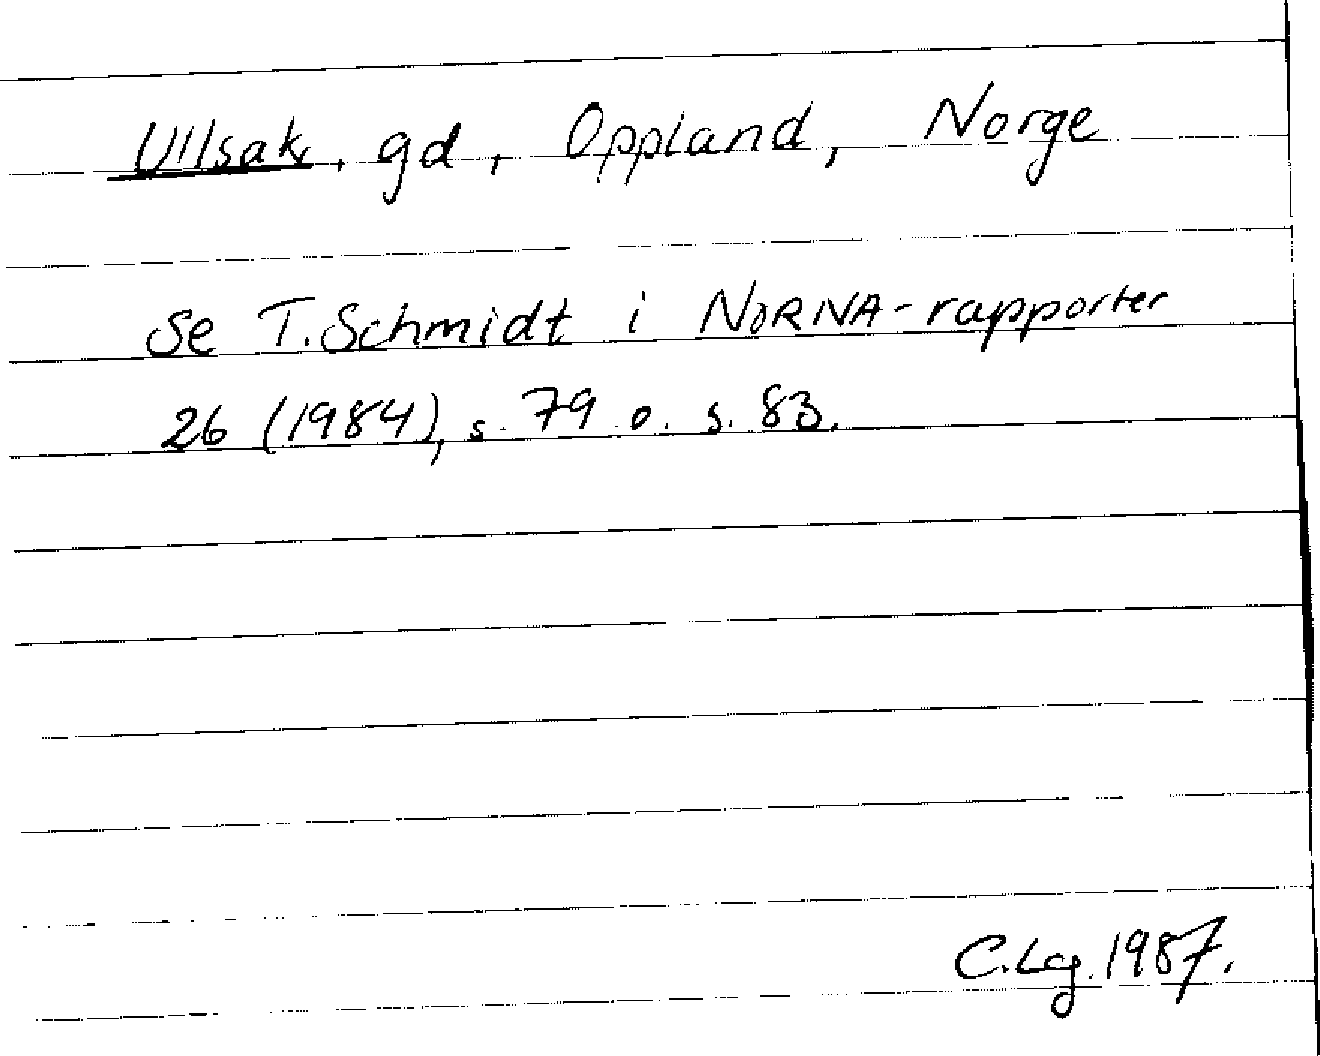 Ullsak, gd, Oppland, Norge
Se T. Schmidt i NORNA-rapporter
26 (1984), s. 79 o. s. 83.
C.Lg. 1987.